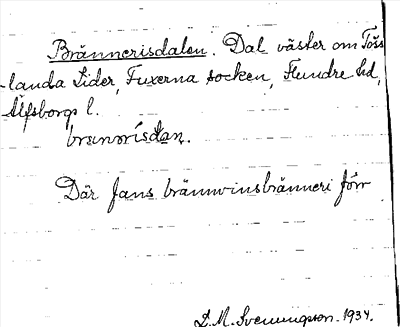 Brännerisdalen. Dal väster om Töss
landa Lider, Fuxerna socken, Flundre hd,
Älfsborgs l.
Där fans brännvinsbränneri förr
D.M. Svenningson. 1934.